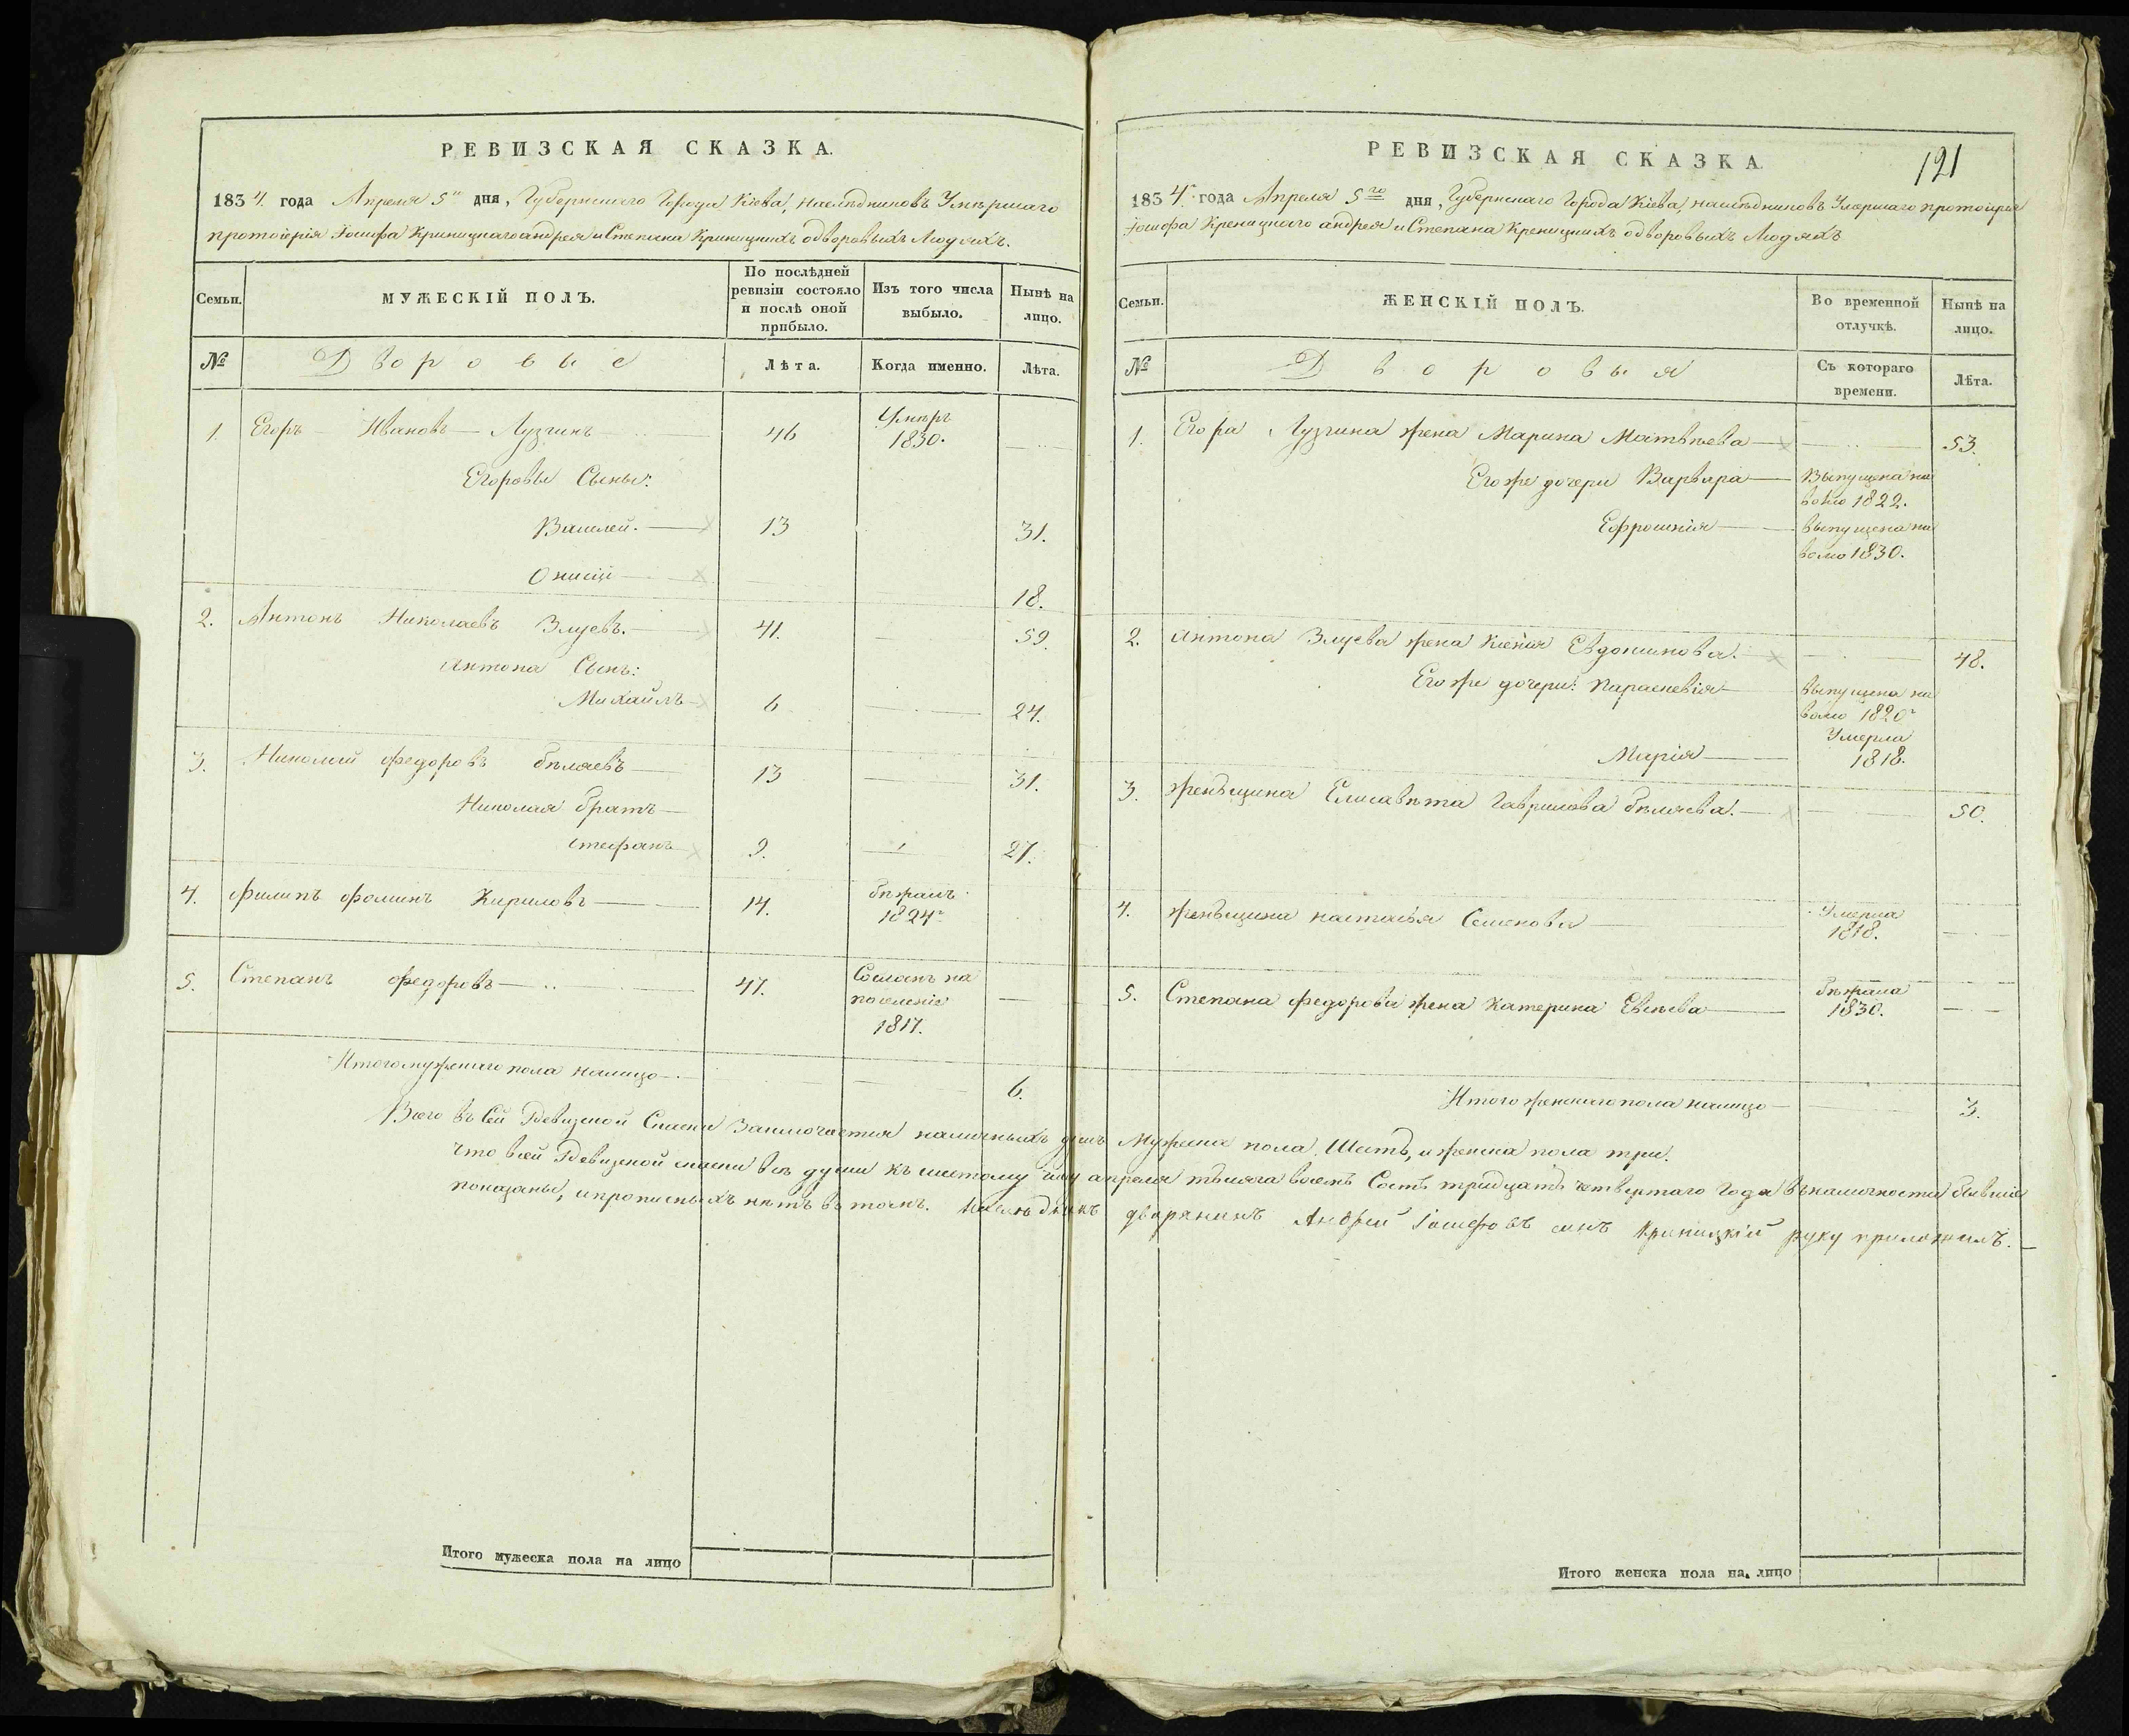 РЕВИЗСКАЯ СКАЗКА.
1834. года Апреля 5го дня, Губернскаго Города Кіева, наслѣдниковъ Умѣршаго
протоіерія Іосифа Криницкаго андрея и Степана Криницкихъ одворовыхъ Людяхъ.
Семьи.
МУЖЕСКІЙ ПОЛЪ.
По послѣдней ревизіи состояло и послѣ оной прибыло.
Изъ того числа выбыло.
Нынѣ на лицо.
№
Дворовые
Лѣта.
Когда именно.
Лѣта.
1. Егоръ Ивановъ Лузгинъ 46 Умѣръ 1830.
Егоровы Сыны:
Василей. 13 31.
Онисій 18.
2. Антонъ Николаевъ Злуевъ. 41. 59.
Антона Сынъ:
Михайлъ 6 24.
3. Николай Федоровъ бѣляевъ 13 31.
Николая братъ
Стефанъ 9. 27.
4. Филипъ Фоминъ Кириловъ 14. бѣжалъ 1824г
5. Степанъ Федоровъ 47. Сосланъ на поселеніе 1817.
Итого мужескаго пола налицо 6.
Итого мужеска пола на лицо
121
РЕВИЗСКАЯ СКАЗКА.
1834. года Апреля 5го дня, Губернскаго Города Кіева, наслѣдниковъ Умершаго протоіерія
Іосифа Креницкаго андрея и Степана Креницкихъ одворовыхъ Людяхъ
Семьи.
ЖЕНСКІЙ ПОЛЪ.
Во временной отлучкѣ.
Нынѣ на лицо.
№
Дворовыя
Съ котораго времени.
Лѣта.
1. Егора Лузгина жена Марина Матвѣева 53.
Егоже дочери Варвара Выпущена на волю 1822.
Ефросинія выпущена на волю 1830.
2. Антона Злуева жена Ксенія Евдокимова. 48.
Его же дочери: Параскевія выпущена на волю 1820г
Марія Умерла 1818.
3. женьщина Елисавѣта Гаврилова бѣляева. 50.
4. женьщина настасья Семенова Умерла 1818.
5. Степана Федорова жена Катерина Евсѣева бѣжала 1830.
Итого женскаго пола налицо 3.
Всего въ Сей Ревизской Сказки Заключается наличныхъ душъ Мужеска пола Шесть, и женска пола три.
Что всей Ревизской сказки всѣ души къ шестому апреля тысяча восемь Сотъ тридцать четвертаго Года въ наличности бывшіе
показаны, и прописныхъ нѣтъ въ томъ. Наследникъ дворянинъ Андрей Іосифовъ синъ Криницкій руку приложилъ.
Итого женска пола на лицо